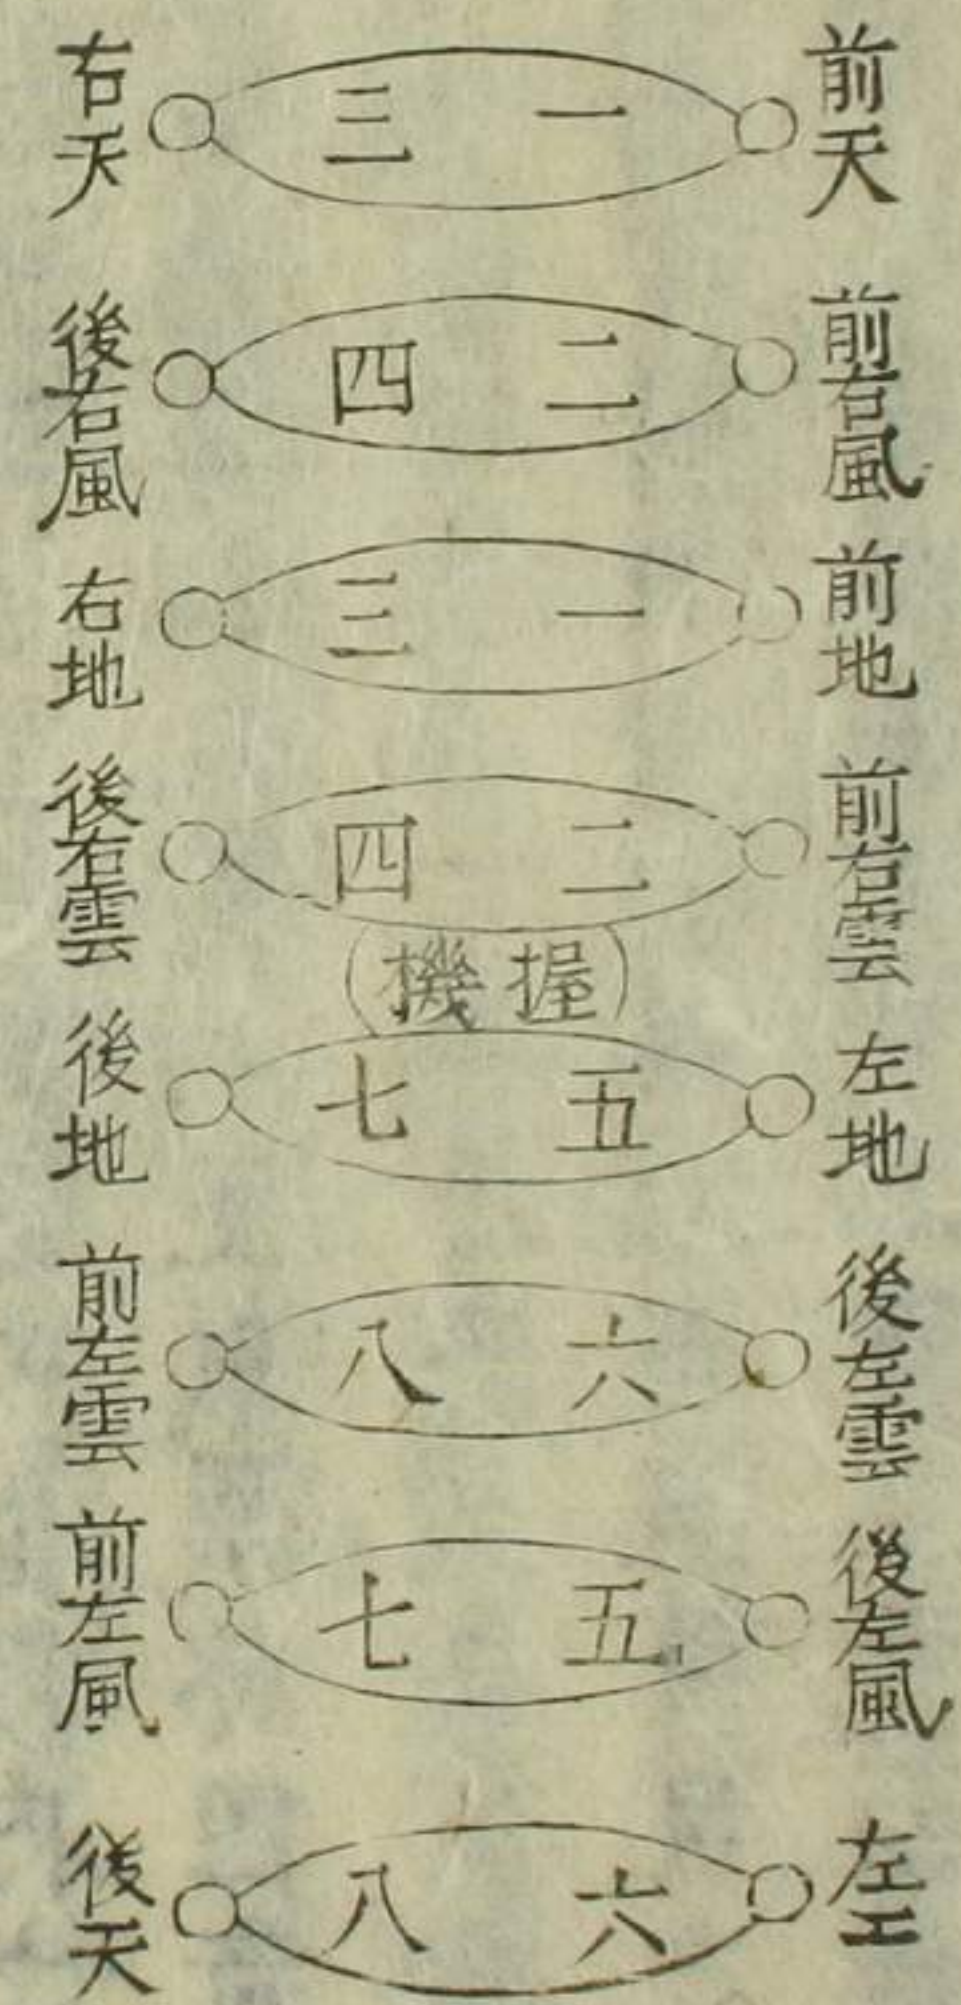 前天 一 三 右天
前右風 二 四 後右風
前地 一 三 右地
前右雲 二 四 後右雲
握機
左地 五 七 後地
後左雲 六 八 前左雲
後左風 五 七 前左風
左 六 八 後天